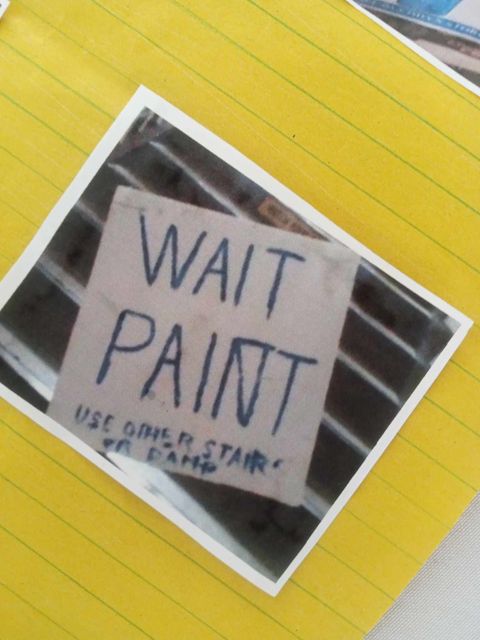 WAIT
PAINT
USE OTHER STAIRS
OR RAMP